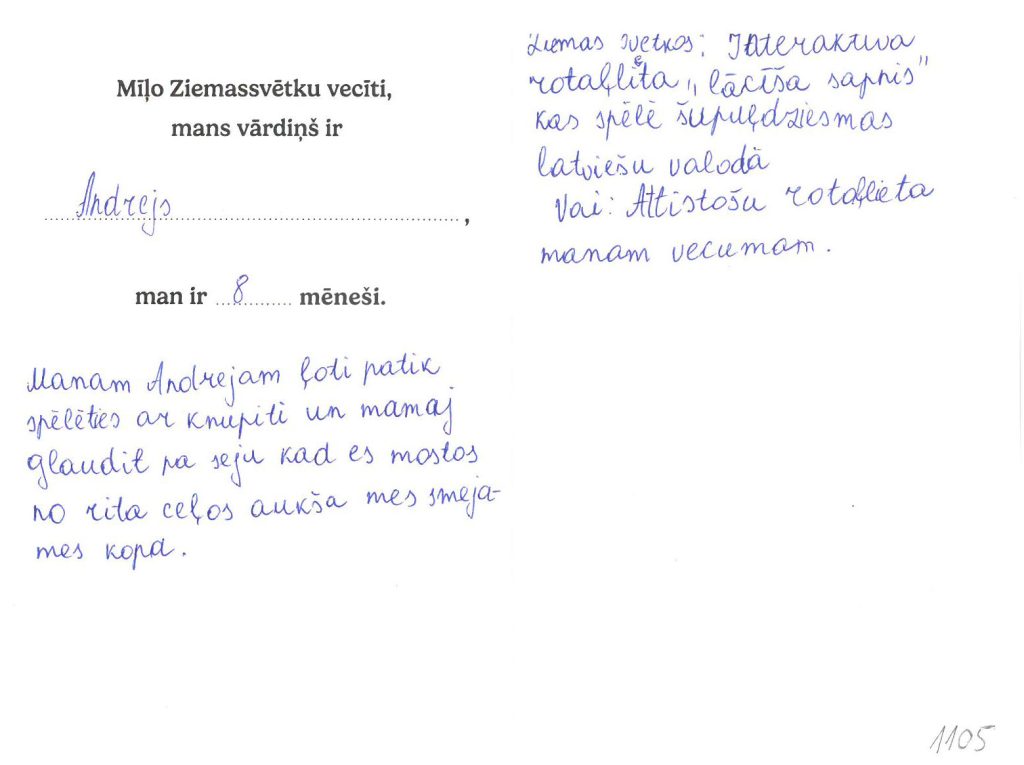 Mīļo Ziemassvētku vecīti,
mans vārdiņš ir
Andrejs,
man ir 8 mēneši.
Manam Andrejam ļoti patik
spēlēties ar knupiti un mamaj
glaudit pa seju kad es mostos
no rita ceļos aukša mes smeja-
mes kopa.
Ziemas svetkos: Interaktiva
rotaļlieta „lācīša sapnis"
kas spēlē šupuļdziesmas
latviešu valodā
Vai: Attistošu rotaļlieta
manam vecumam.
1105